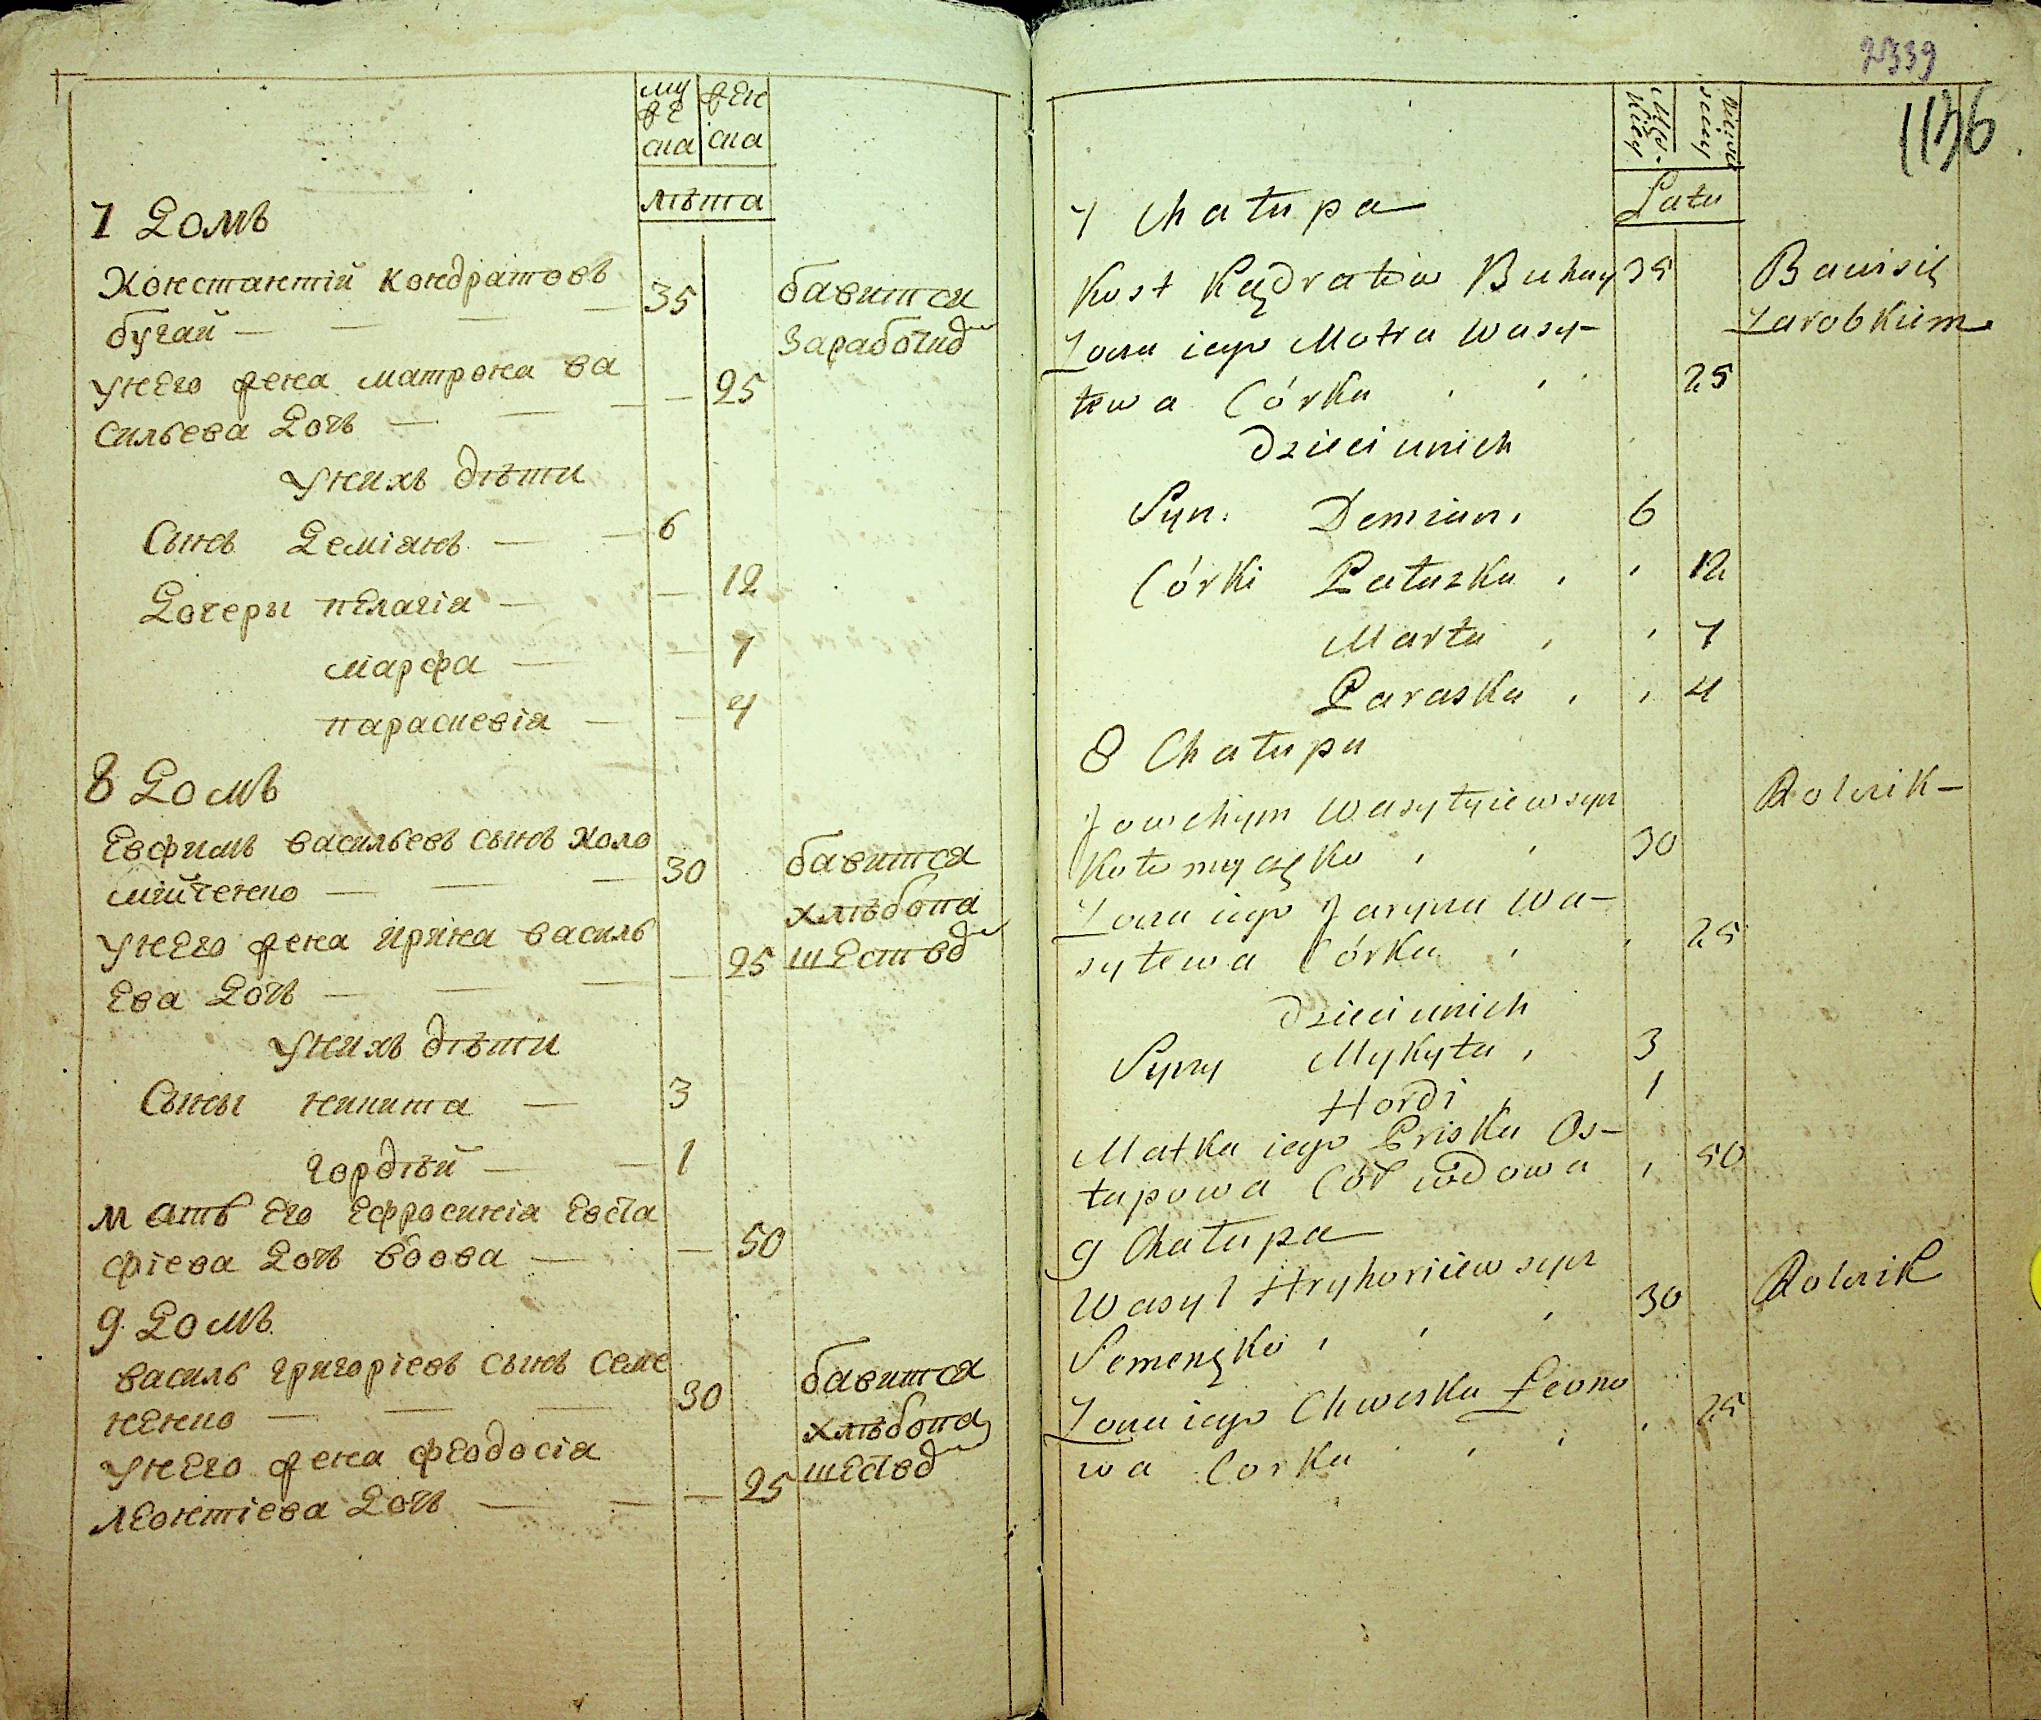 му же ска
жен ска
лѣта
7 Домъ
Константій Кондратовъ 35 бавится
бугай — — — — заработко
унего жена матрона ва
сильева Дочь — — — — 25
унихъ дѣти
Сынъ Деміянъ — — 6
Дочеры пелагіа — — 12
марфа — — 7
параскевіа — — 4
8 Домъ
Евфимъ васильевъ сынъ коло
мійченко — — — 30 бавится
хлѣбопа
унего жена ирина василь
ева Дочь — — — — 25 шество
унихъ дѣти
Сыны никита — 3
гордѣй — — 1
мать его ефросиніа евста
фіева Дочь вдова — — 50
9 Домъ
василь григоріевъ сынъ семе
ненко — — — 30 бавится
хлѣбопа
унего жена феодосіа шество
леонтіева Дочь — — — 25
2339
136
Męz-
kiey
Latu
7 Chałupa
Kost Kądratów Buhay 35 Bawi się
Zarobkiem
Żona iego Motra Wasy-
lewa Córka 25
Dzieci unich
Syn. Demian 6
Córki Pałazka 12
Marta 7
Paraska 4
8 Chałupa
Jowchym Wasylyiew syn Rolnik —
Kołomyczęko 30
Żona iego Jaryna Wa-
sylewa Córka 25
Dzieci unich
Syny Mykyta 3
Hordi 1
Matka iego Priska Os-
tapowa Cór wdowa 50
9 Chałupa
Wasyl Hryhoriiew syn Rolnik
Semenęko 30
Żona iego Chweska Leono
wa Corka 25